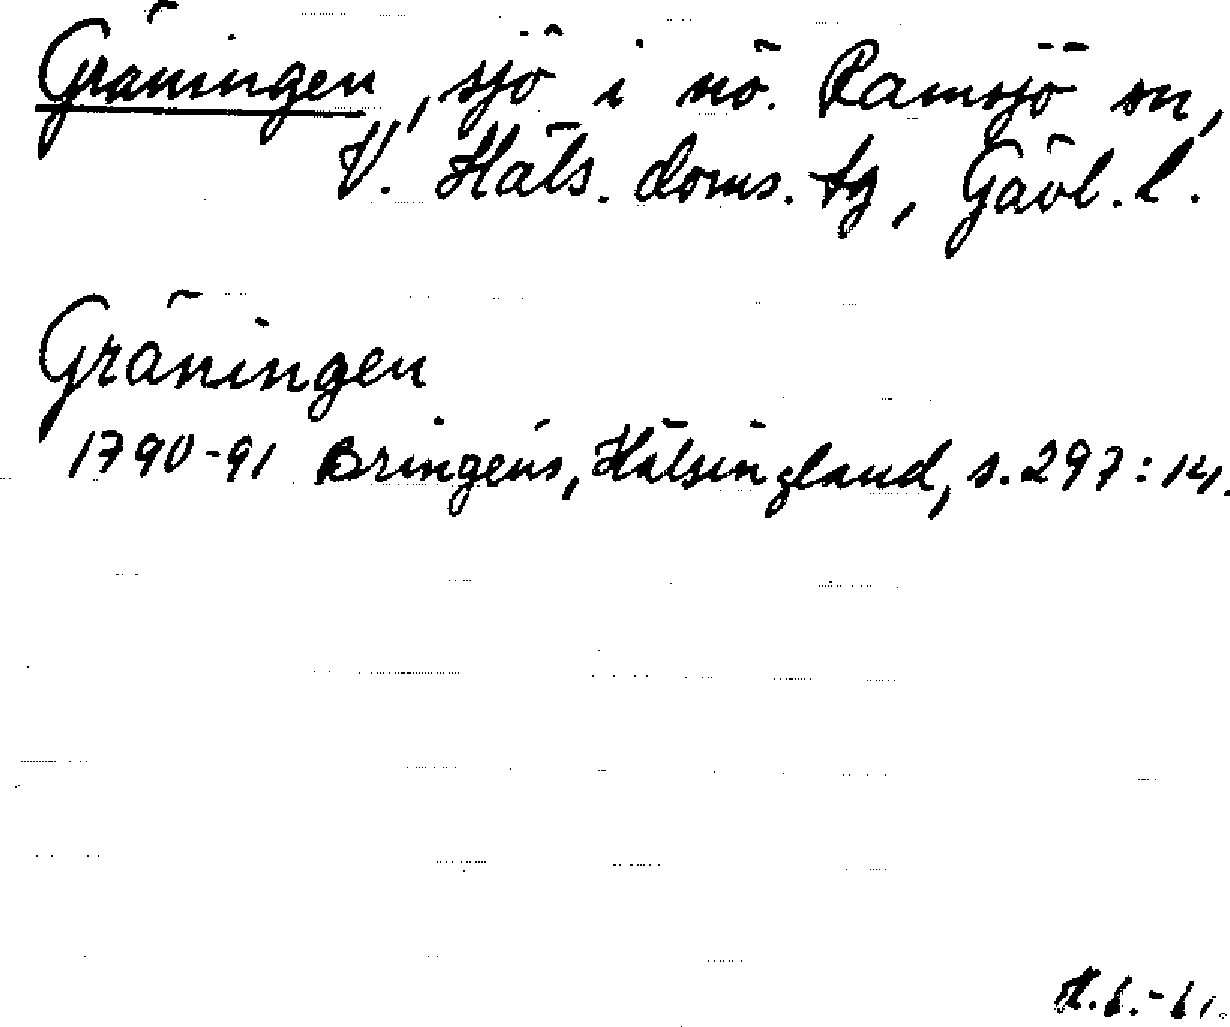 Gräningen, sjö i nö. Ramsjö sn,
V. Häls. doms. tg, Gävl. l.
Gräningen
1790-91 Bringéus, Hälsingland, s. 297:14.
H.b.-61.